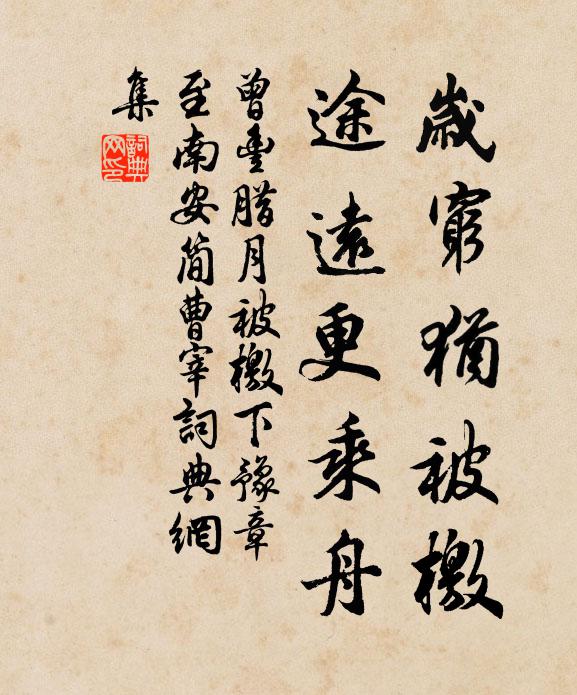 歲窮猶被檄
途遠更乘舟
曾豐腊月被檄下豫章
至南安簡曹宰詞典網
集
詞典
网印